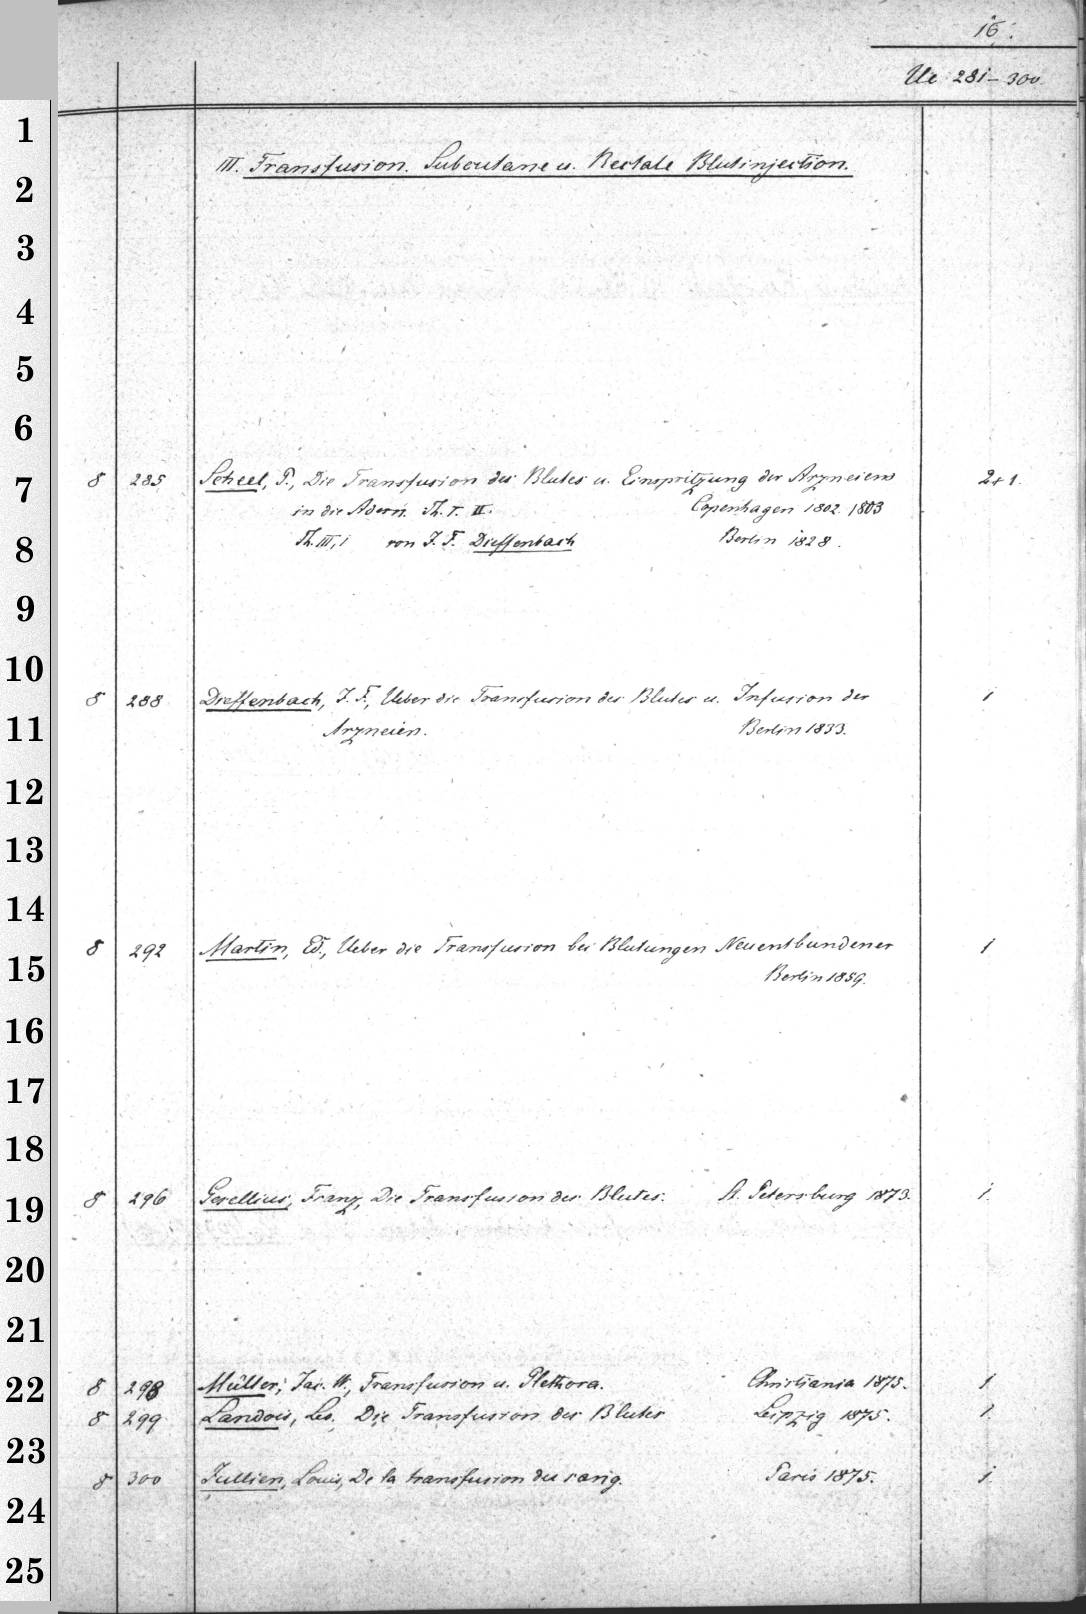 16.
Ue 281-300.
1
III. Transfusion. Subcutane u. Rectale Blutinjection.
2
3
4
5
6
7
8 285 Scheel, P., Die Transfusion des Blutes u. Einspritzung der Arzneien 2+1.
in die Adern. Th. I. II. Copenhagen 1802. 1803
8
Th. III,1 von J. F. Dieffenbach Berlin 1828.
9
10
8 288 Dieffenbach, J. F., Ueber die Transfusion des Blutes u. Infusion der 1
11
Arzneien. Berlin 1833.
12
13
14
8 292 Martin, Ed., Ueber die Transfusion bei Blutungen Neuentbundener 1
15
Berlin 1859.
16
17
18
8 296 Gesellius, Franz, Die Transfusion des Blutes. St. Petersburg 1873. 1.
19
20
21
22
8 298 Müller, Jac. W., Transfusion u. Plethora. Christiania 1875. 1
8 299 Landois, Leo. Die Transfusion des Blutes Leipzig 1875. 1.
23
8 300 Jullien, Louis, De la transfusion du sang. Paris 1875. 1.
24
25